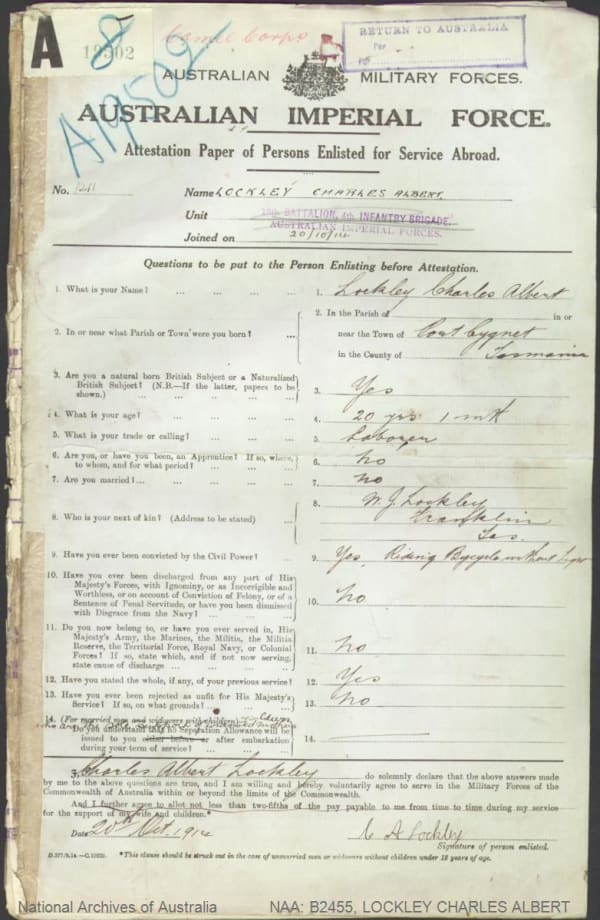 A
8
19502
A19502
Camel Corps
RETURN TO AUSTRALIA
Per
AUSTRALIAN MILITARY FORCES.
AUSTRALIAN IMPERIAL FORCE.
Attestation Paper of Persons Enlisted for Service Abroad.
No.
Name LOCKLEY CHARLES ALBERT.
Unit BATTALION, 4th INFANTRY BRIGADE
AUSTRALIAN IMPERIAL FORCES.
Joined on 20/10/14
Questions to be put to the Person Enlisting before Attestation.
1. What is your Name? ... ... ... ...
1. Lockley Charles Albert
2. In or near what Parish or Town were you born? ...
2. In the Parish of in or
near the Town of Port Cygnet
in the County of Tasmania
3. Are you a natural born British Subject or a Naturalized
British Subject? (N.B.—If the latter, papers to be
shown.) ... ... ... ...
3. Yes
4. What is your age? ... ... ... ...
4. 20 yrs 1 mth
5. What is your trade or calling? ... ... ...
5. Laborer
6. Are you, or have you been, an Apprentice? If so, where,
to whom, and for what period? ... ... ...
6. No
7. Are you married?... ... ... ... ...
7. No
8. Who is your next of kin? (Address to be stated) ...
8. W. J. Lockley
Franklin
Tas.
9. Have you ever been convicted by the Civil Power?
9. Yes, Riding Bycycle without light
10. Have you ever been discharged from any part of His
Majesty's Forces, with Ignominy, or as Incorrigible and
Worthless, or on account of Conviction of Felony, or of a
Sentence of Penal Servitude, or have you been dismissed
with Disgrace from the Navy? ... ... ...
10. No
11. Do you now belong to, or have you ever served in, His
Majesty's Army, the Marines, the Militia, the Militia
Reserve, the Territorial Force, Royal Navy, or Colonial
Forces? If so, state which, and if not now serving,
state cause of discharge ... ... ... ...
11. No
12. Have you stated the whole, if any, of your previous service?
12. Yes
13. Have you ever been rejected as unfit for His Majesty's
Service? If so, on what grounds? ... ... ...
13. No
14. (For married men and widowers with children)—
who are the sole support of widowed mother
Do you understand that no Separation Allowance will be
issued to you either before or after embarkation
during your term of service? ... ... ...
14.
I, Charles Albert Lockley do solemnly declare that the above answers made
by me to the above questions are true, and I am willing and hereby voluntarily agree to serve in the Military Forces of the
Commonwealth of Australia within or beyond the limits of the Commonwealth.
And I further agree to allot not less than two-fifths of the pay payable to me from time to time during my service
for the support of my wife and children.*
Date 20th Oct. 1914
C A Lockley
Signature of person enlisted.
*This clause should be struck out in the case of unmarried men or widowers without children under 18 years of age.
National Archives of Australia
NAA: B2455, LOCKLEY CHARLES ALBERT